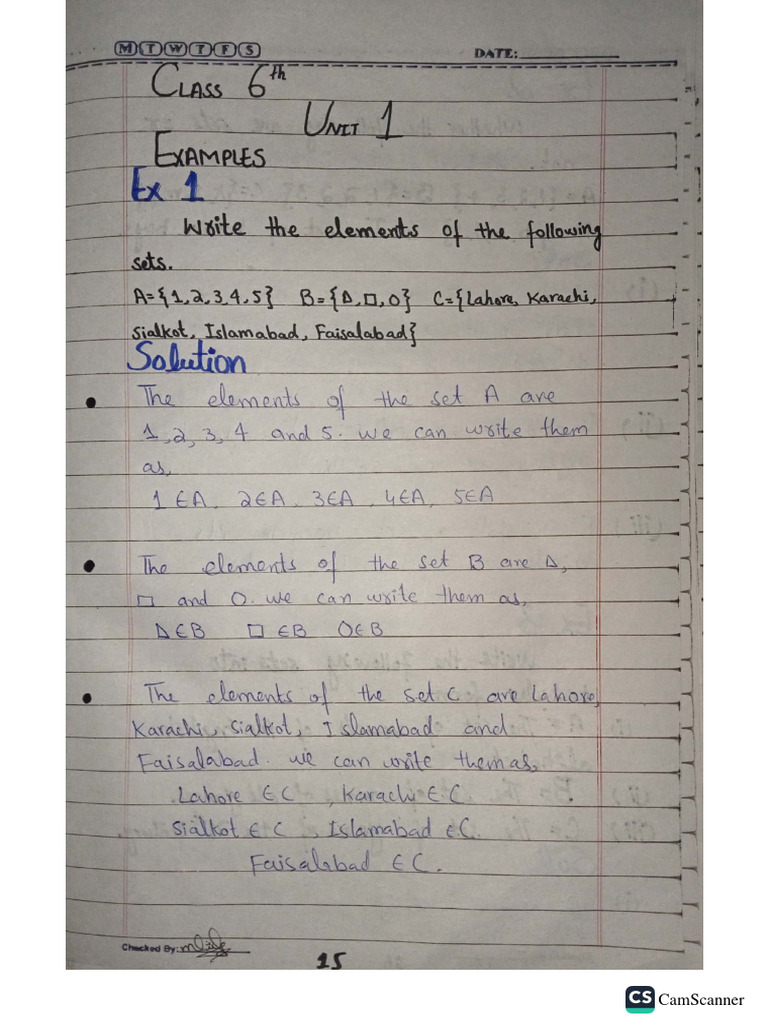 M T W T F S
DATE:
CLASS 6th
UNIT 1
EXAMPLES
Ex 1
Write the elements of the following
sets.
A={1,2,3,4,5} B={Δ,□,O} C={Lahore, Karachi,
Sialkot, Islamabad, Faisalabad}
Solution
• The elements of the set A are
1,2,3,4 and 5. we can write them
as,
1∈A, 2∈A, 3∈A, 4∈A, 5∈A
• The elements of the set B are Δ,
□ and O. we can write them as,
Δ∈B □∈B O∈B
• The elements of the set C are Lahore,
Karachi, Sialkot, Islamabad and
Faisalabad. we can write them as,
Lahore ∈ C, Karachi ∈ C.
Sialkot ∈ C Islamabad ∈ C.
Faisalabad ∈ C.
Checked By:
15
CS CamScanner